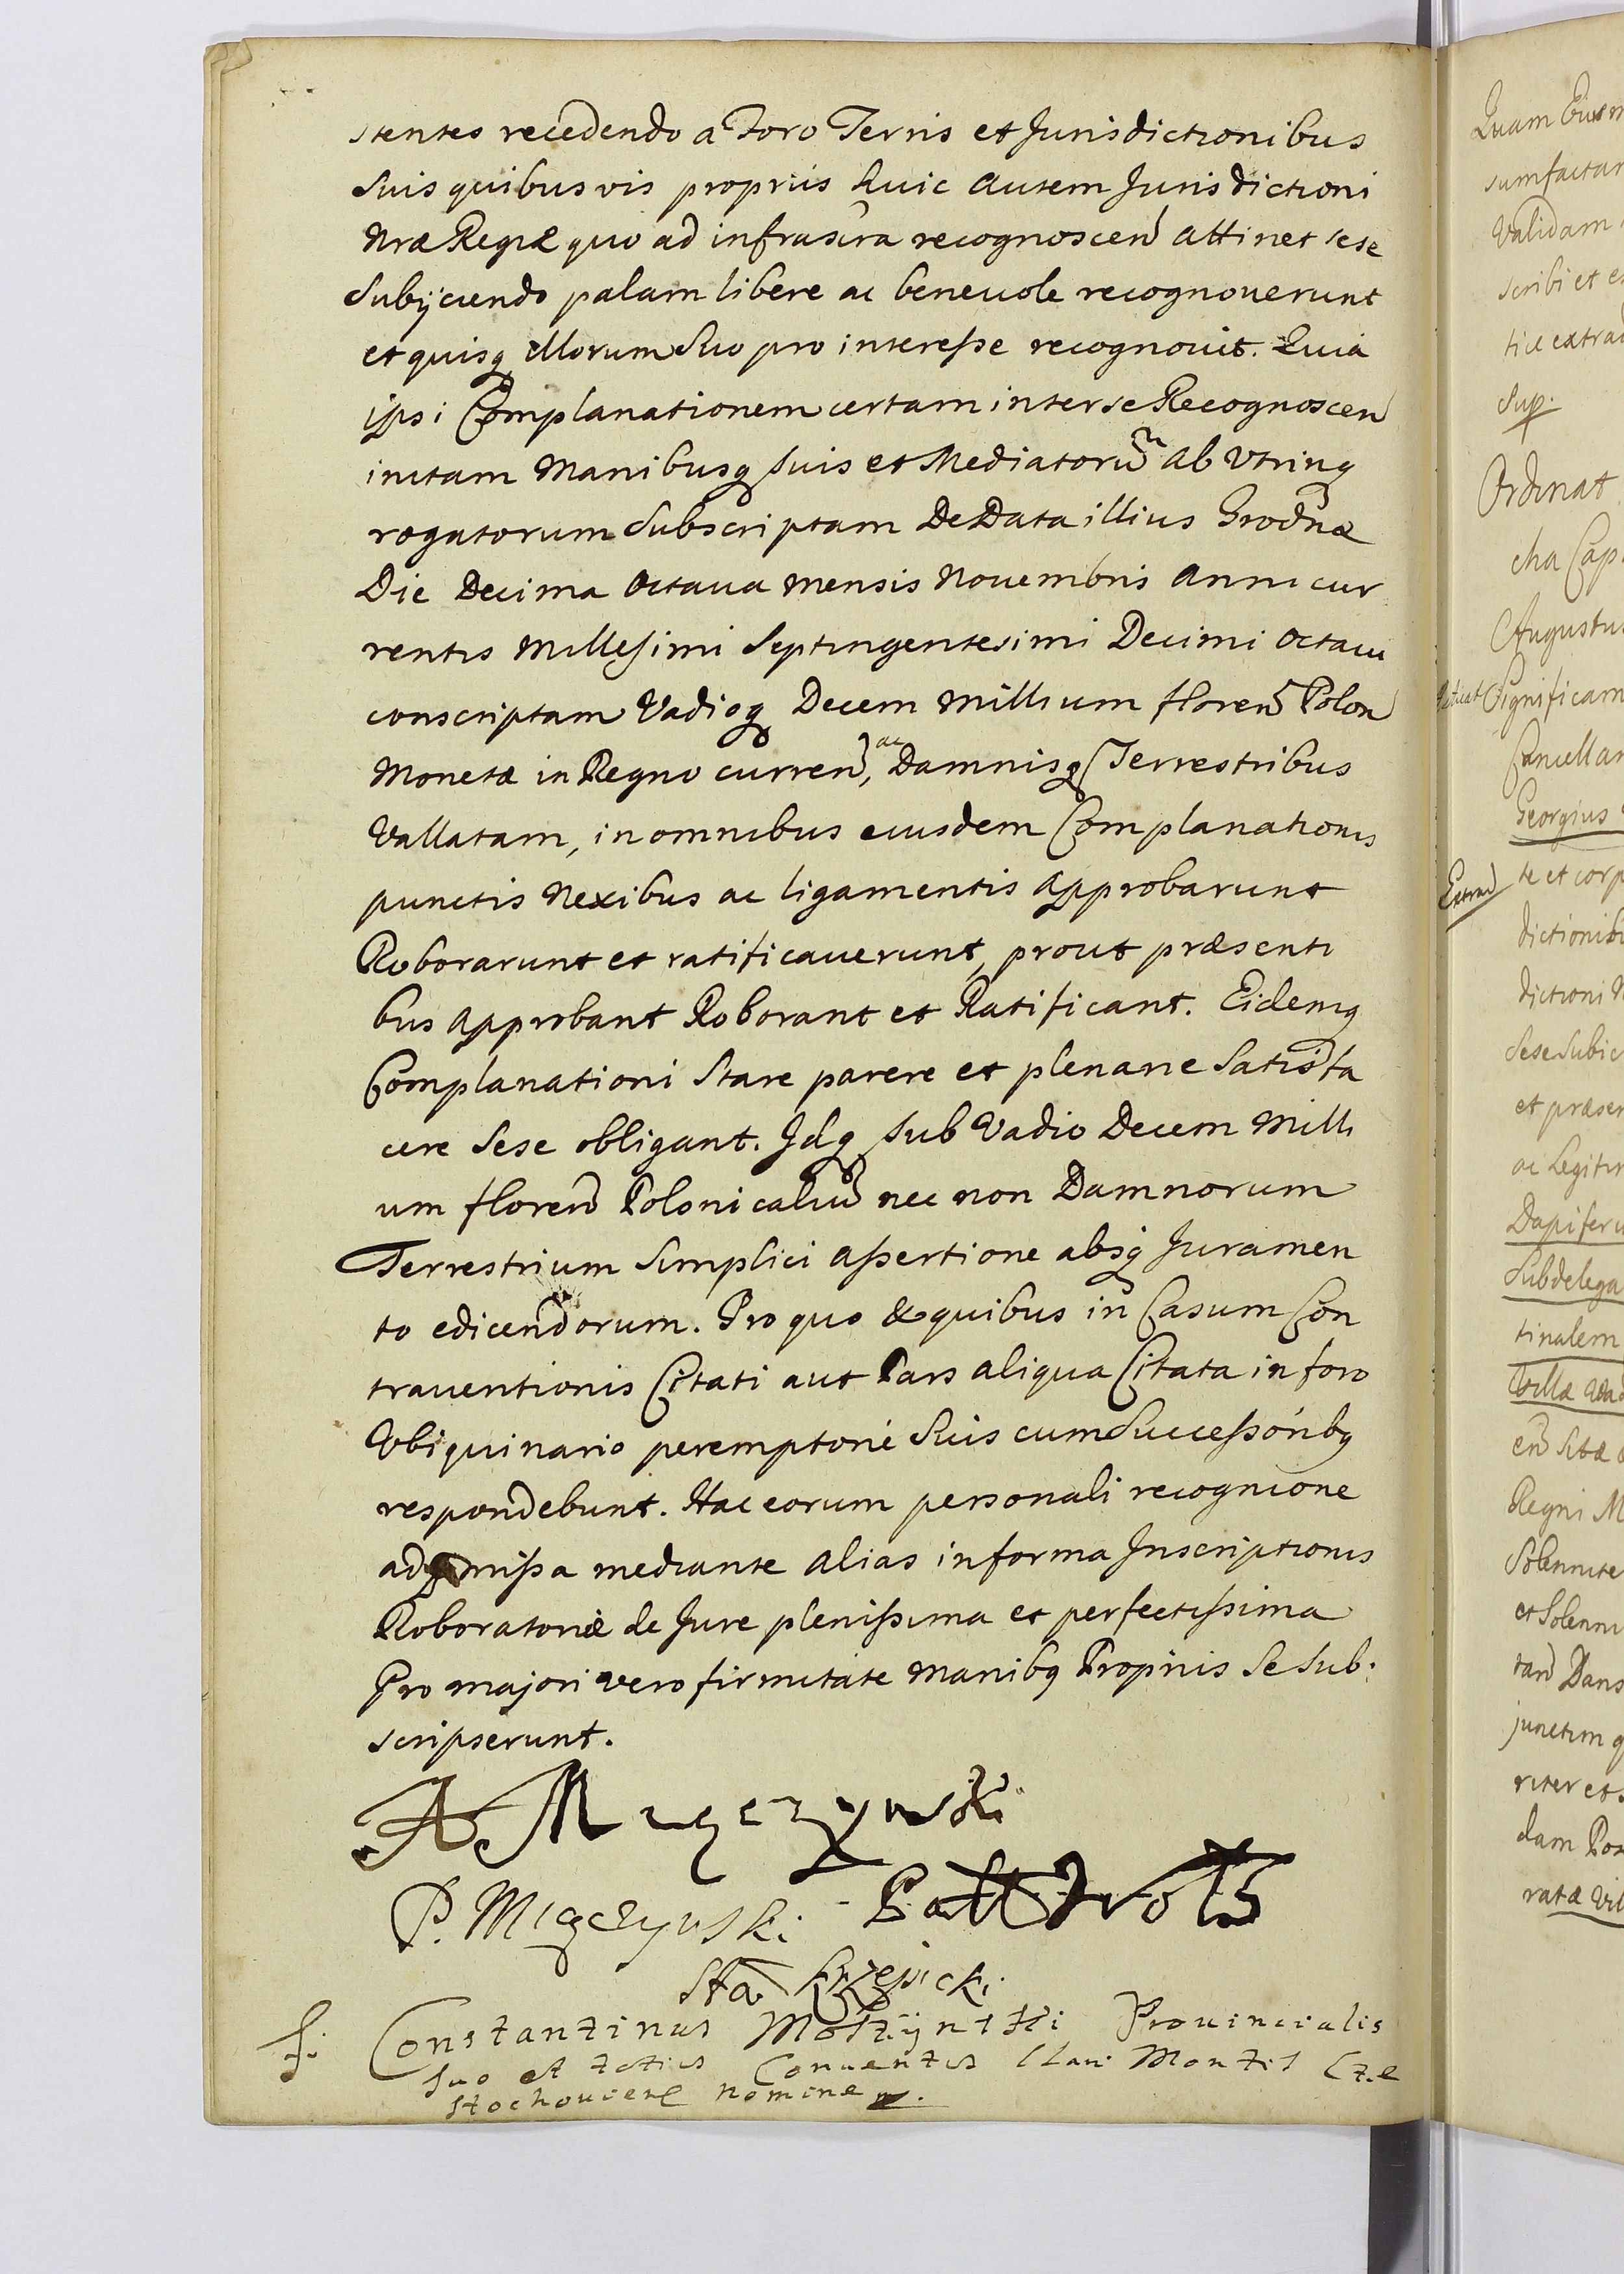 stentes recedendo a Foro Terris et Jurisdictionibus
Suis quibus vis proprijs huic autem Jurisdictioni
Nræ Regiæ quo ad infrascra recognoscen attinet sese
Subijciendo palam libere ac beneuole recognouerunt
et quisq illorum Suo pro interesse recognouit. Quia
ipsi Complanationem certam inter se Recognoscen
initam Manibusq suis et Mediatorum ab Vtrinq
rogatorum Subscriptam De Data illius Grodnæ
Die Decima Octaua mensis Nouembris Anni cur
rentis Millesimi Septingentesimi Decimi Octaui
conscriptam Vadioq Decem Millium floren Polon
Monetæ in Regno curren, ac Damnisq Terrestribus
Vallatam, in omnibus eiusdem Complanationis
punctis Nexibus ac ligamentis approbarunt
Roborarunt et ratificauerunt, prout præsenti
bus approbant Roborant et Ratificant. Eidemq
Complanationi Stare parere et plenarie Satisfa
cere Sese obligant. Idq sub Vadio Decem Milli
um floren Polonicaliu nec non Damnorum
Terrestrium Simplici assertione absq Juramen
to edicendorum. Pro quo & quibus in Casum Con
trauentionis Citati aut Pars aliqua Citata in foro
Vbiquinario peremptorie Suis cum Successoribq
respondebunt. Hac eorum personali recognicione
admissa mediante alias in forma Inscriptionis
Roboratoriæ de Jure plenissima et perfectissima
Pro majori vero firmitate manibq Proprijs Se Sub:
scripserunt.
A Męczyński
P. Męczyński
Sta Krzepicki
f. Constantinus Moszyntski Prouincialis
suo et totius Conuentus Clari Montis Cze
stochouien nomine
Quam
Validam
scribi et
Sup.
Ordinat
Augustus
Significam
Cancellar
Georgius
Extrad
te et corp
dictionib
dictioni N
Sese Subic
et præsen
ac Legitim
Dapiferu
Subdelega
tinalem
Villæ
Regni M
Solennite
et Solenni
Dans
junctim q
riter et
dam
ratæ Vil